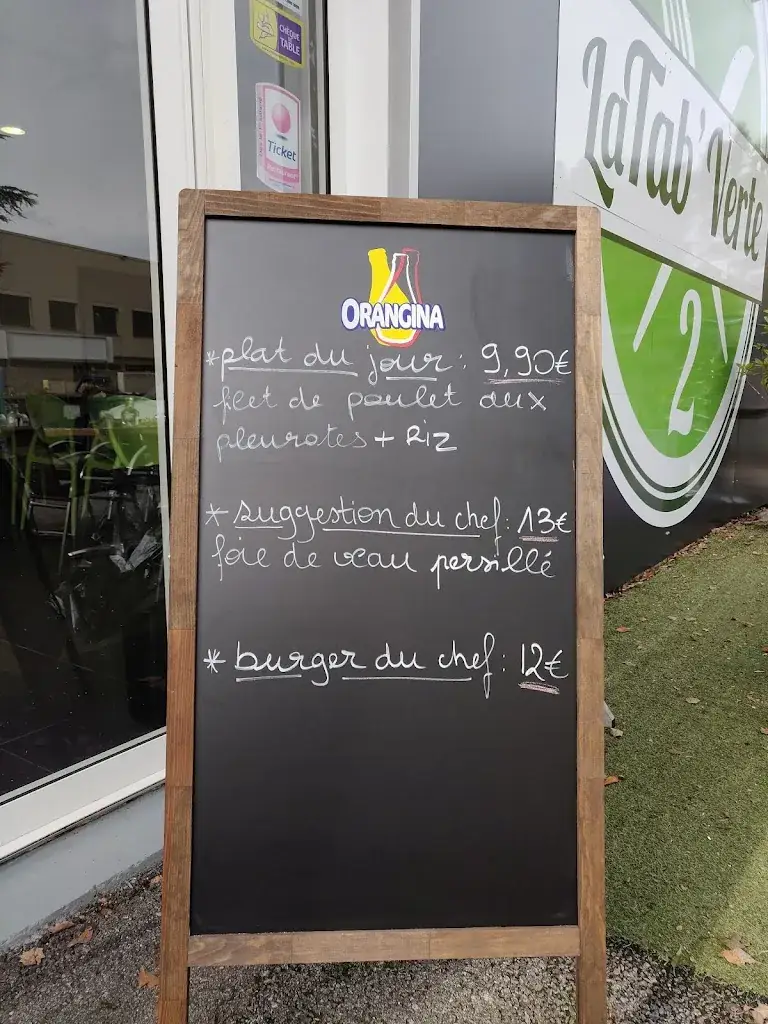 CHÈQUE DE TABLE
Ticket
LaTab' Verte
2
ORANGINA
*plat du jour : 9,90€
filet de poulet aux
pleurotes + Riz
* suggestion du chef : 13€
foie de veau persillé
* burger du chef : 12€